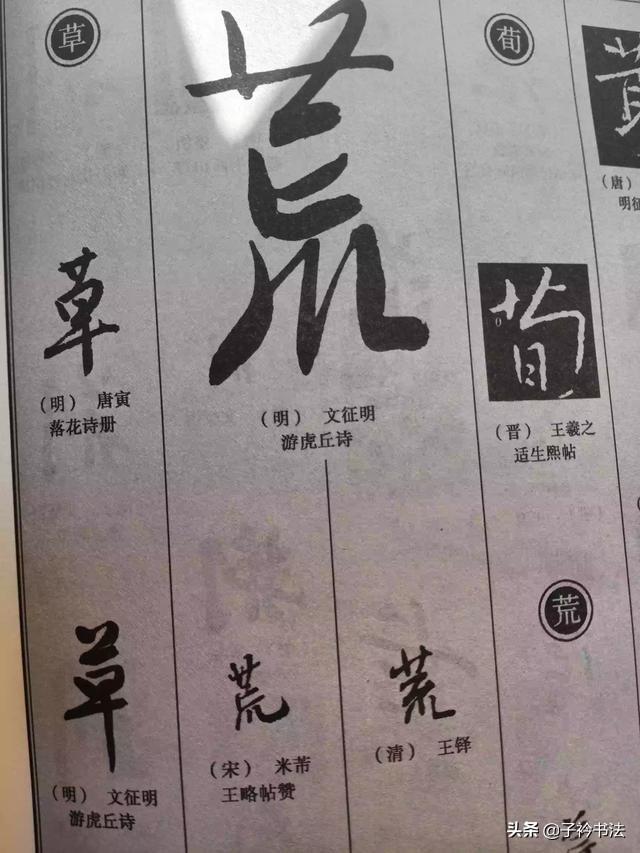 （唐）
明征
荀
荀
（晋） 王羲之
适生熙帖
荒
荒
（明） 文征明
游虎丘诗
荒
（清） 王铎
荒
（宋） 米芾
王略帖赞
草
草
（明） 唐寅
落花诗册
草
（明） 文征明
游虎丘诗
头条 @子衿书法